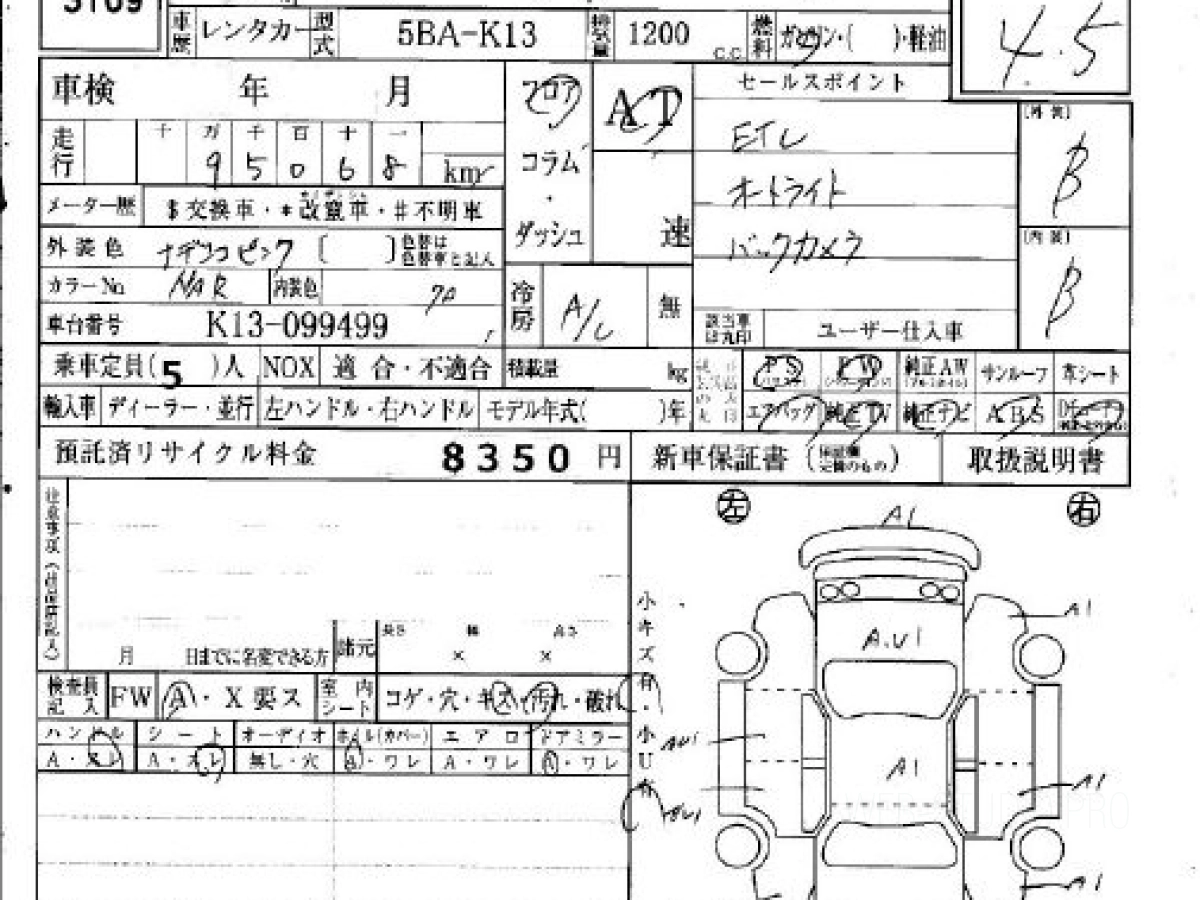 3109
車歴 レンタカー 型式 5BA-K13 排気量 1200 C.C. 燃料 ガソリン・( )・軽油
4.5
車検 年 月
フロア AT
セールスポイント
走行 千 万 千 百 十 一
9 5 0 6 8 km
コラム・ダッシュ 速
ETC
オートライト
バックカメラ
(外装) B
(内装) B
メーター歴 $交換車・*改竄車・#不明車
外装色 ナデシコピンク [ ] 色替は色替車と記入
カラーNo NAR 内装色
冷房 A/C 無
車台番号 K13-099499
該当車は丸印 ユーザー仕入車
乗車定員( 5 )人 NOX 適合・不適合 積載量 kg
PS PW 純正AW サンルーフ 革シート
輸入車 ディーラー・並行 左ハンドル・右ハンドル モデル年式( )年
エアバッグ 純正TV 純正ナビ ABS
預託済リサイクル料金 8350 円
新車保証書 取扱説明書
左 右
月 日までに名変できる方
諸元 長さ 幅 高さ
× ×
小キズ有・小U有
検査員記入 FW A・X要ス 室内シート コゲ・穴・キズ・汚れ・破れ
ハンドル シート オーディオ ホイル(カバー) エアロ ドアミラー
A・スレ A・スレ 無し・穴 A・ワレ A・ワレ A・ワレ
A1
A1
A.U1
AU1
A1
A1
A1